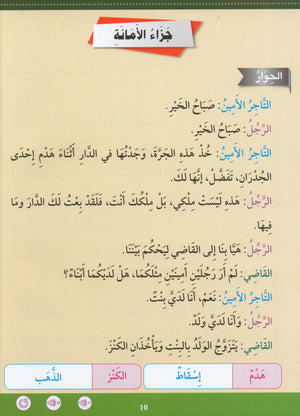 جَزَاءُ الأَمَانَةِ
الحِوَارُ
التَّاجِرُ الأَمِينُ: صَبَاحُ الخَيْرِ.
الرَّجُلُ: صَبَاحُ الخَيْرِ.
التَّاجِرُ الأَمِينُ: خُذْ هَذِهِ الجَرَّةَ، وَجَدْتُهَا فِي الدَّارِ أَثْنَاءَ هَدْمِ إِحْدَى
الجُدْرَانِ، تَفَضَّلْ، إِنَّهَا لَكَ.
الرَّجُلُ: هَذِه لَيْسَتْ مِلْكِي، بَلْ مِلْكُكَ أَنْتَ، فَلَقَدْ بِعْتُ لَكَ الدَّارَ ومَا
فِيهَا.
الرَّجُلُ: هَيَّا بِنَا إِلَى القَاضِي لِيَحْكُمَ بَيْنَنَا.
القَاضِي: لَمْ أَرَ رَجُلَيْنِ أَمِينَيْنِ مِثْلَكُمَا، هَلْ لَدَيْكُمَا أَبْنَاءٌ؟
التَّاجِرُ الأَمِينُ: نَعَمْ، أَنَا لَدَيَّ بِنْتٌ.
الرَّجُلُ: وَأَنَا لَدَيَّ وَلَدٌ.
القَاضِي: يَتَزَوَّجُ الوَلَدُ بِالبِنْتِ وَيَأْخُذَانِ الكَنْزَ.
هَدْمٌ إِسْقَاطٌ الكَنْزُ الذَّهَب
10